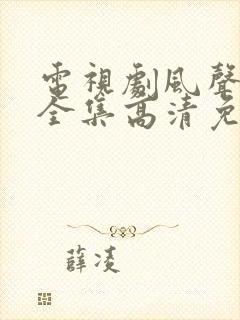 電視劇風聲
全集高清免
薛凌